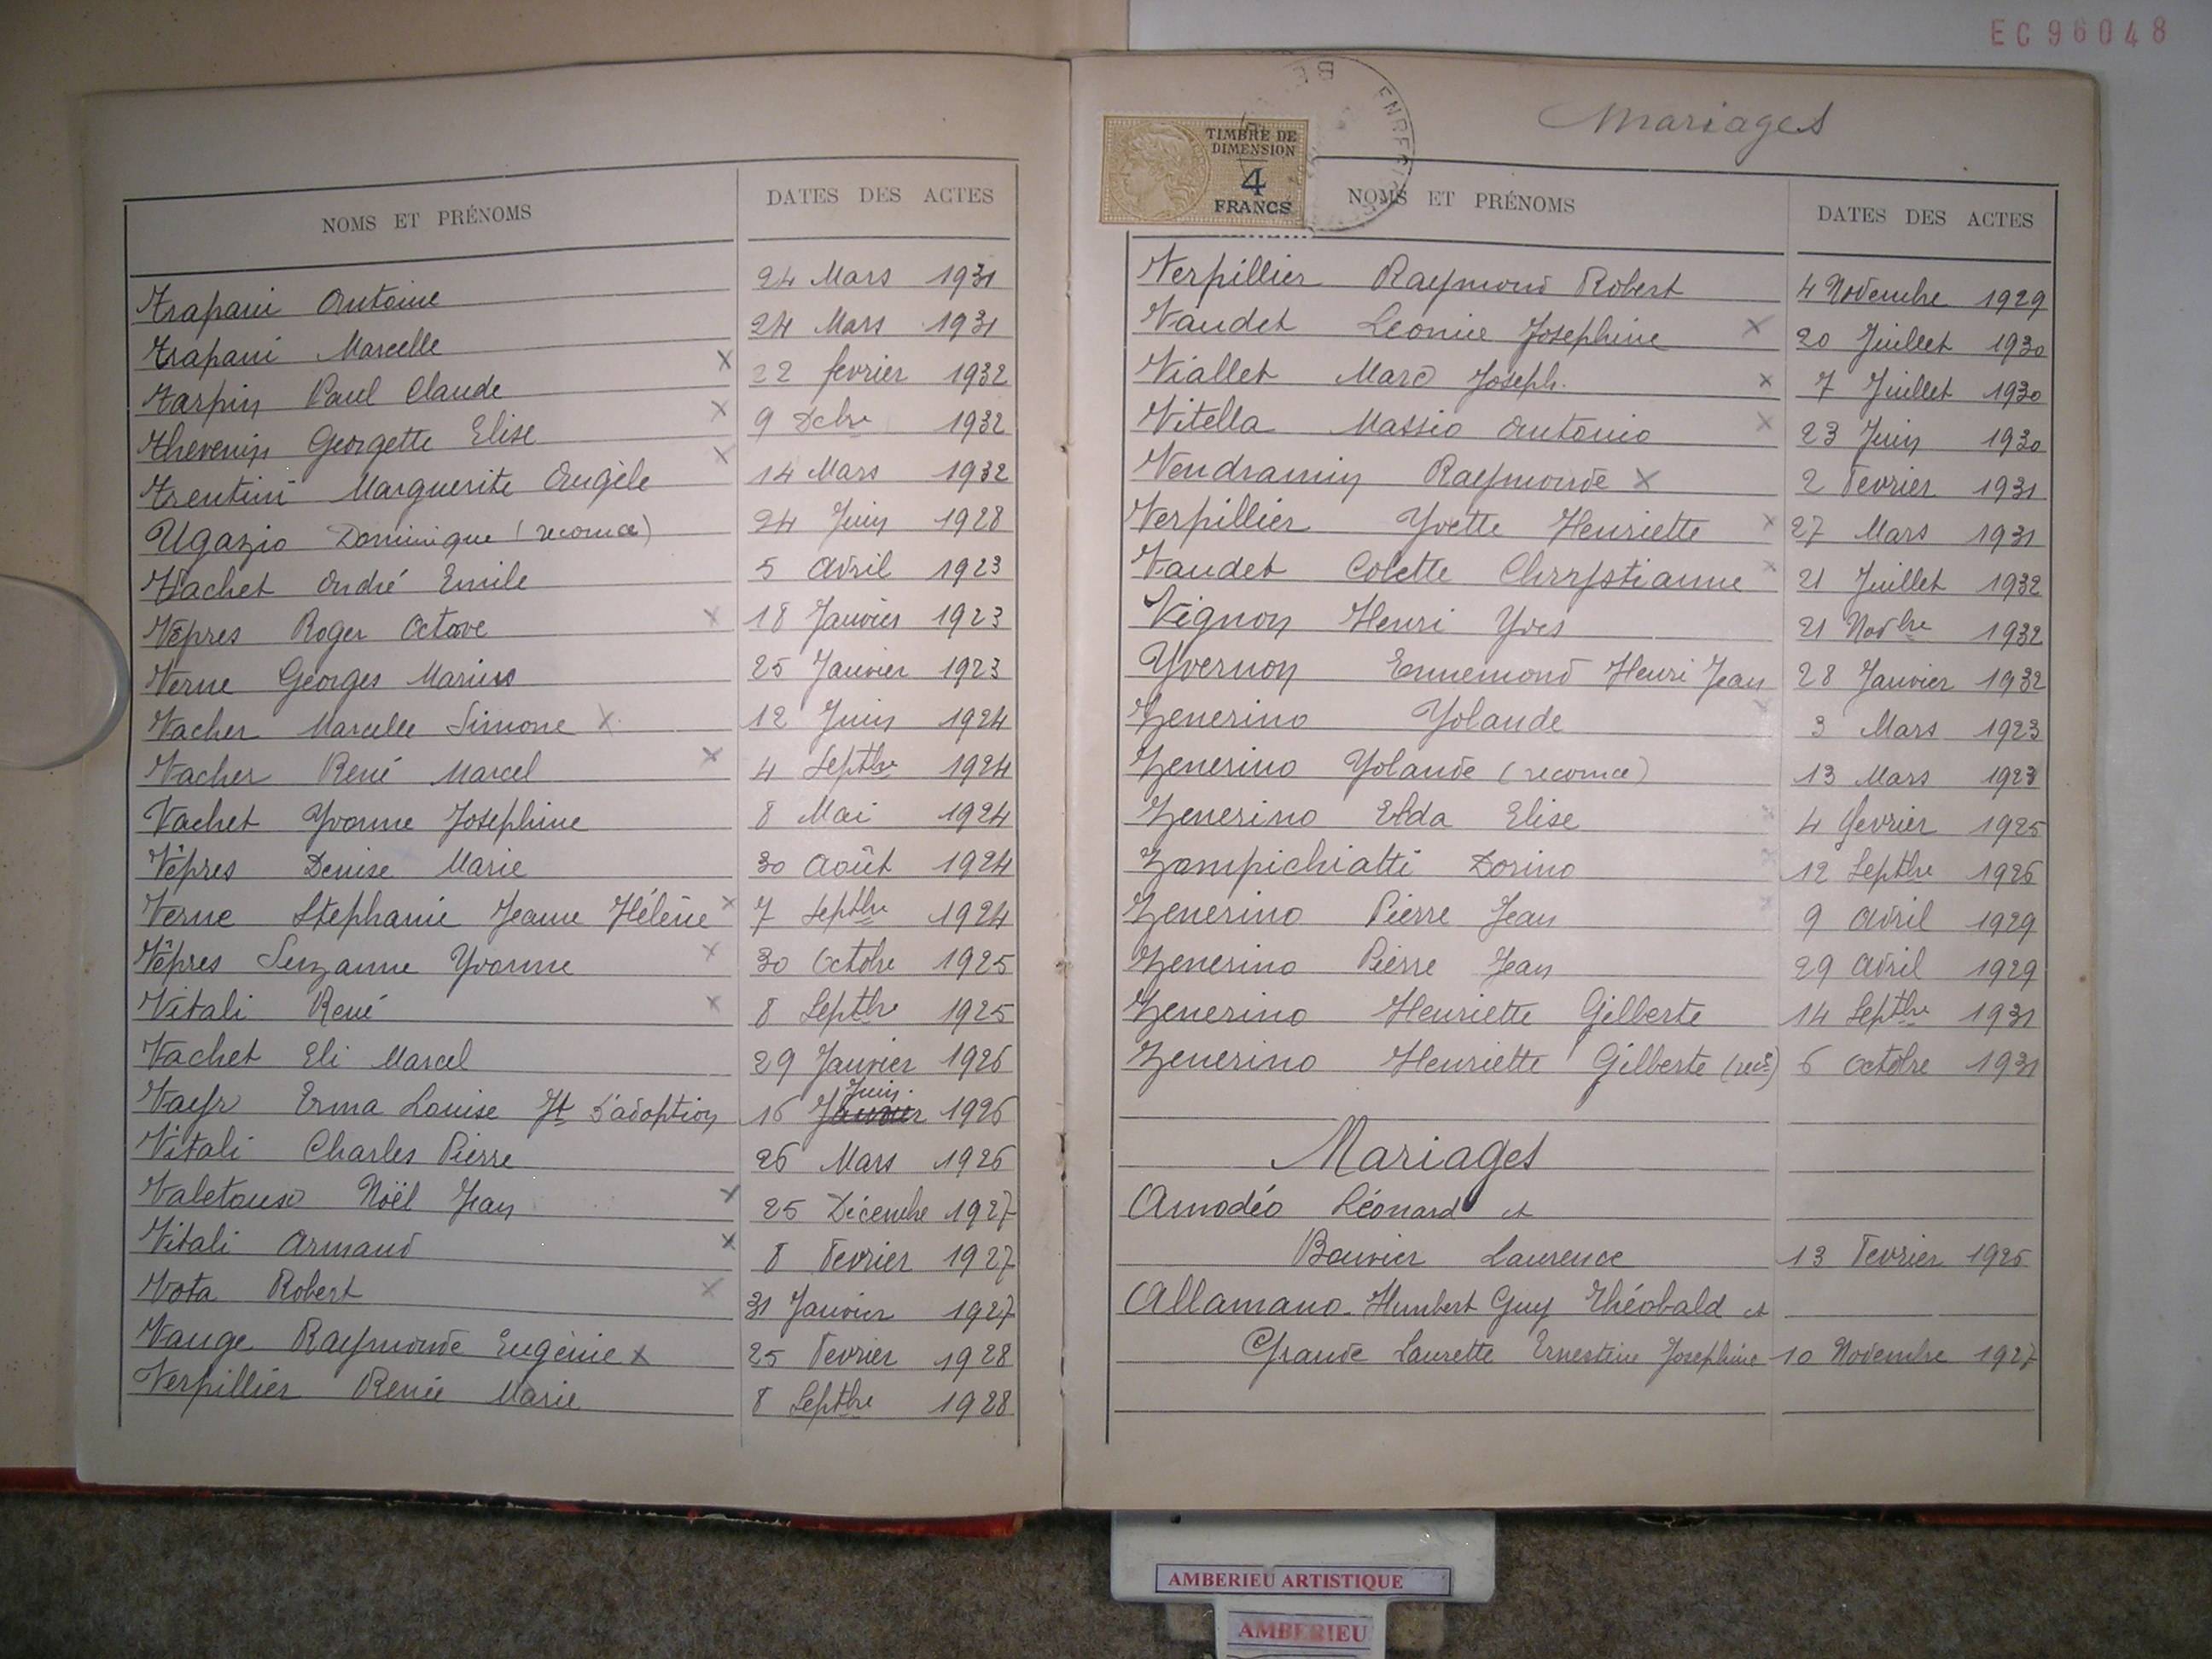 EC96048
NOMS ET PRÉNOMS DATES DES ACTES
Trapani Antoine 24 Mars 1931
Trapani Marcelle 24 Mars 1931
Tarpin Paul Claude x 22 fevrier 1932
Thevenin Georgette Elise x 9 Dcbre 1932
Trentini Marguerite Angèle x 14 Mars 1932
Ugazio Dominique (reconnce) 24 Juin 1928
Vachet André Emile 5 Avril 1923
Vêpres Roger Octave x 18 Janvier 1923
Verne Georges Marius 25 Janvier 1923
Vacher Marcelle Simone x 12 Juin 1924
Vacher René Marcel x 4 Septbre 1924
Vachet Yvonne Joséphine 8 Mai 1924
Vêpres Denise Marie 30 Août 1924
Verne Stephanie Jeanne Hélène x 7 Septbre 1924
Vêpres Suzanne Yvonne x 30 Octobre 1925
Vitali René x 8 Septbre 1925
Vachet Eli Marcel 29 Janvier 1926
Vayr Erma Louise Jt d'adoption 16 Janvier Juin 1926
Vitali Charles Pierre 26 Mars 1926
Valetoux Noël Jean x 25 Décembre 1927
Vitali Armand x 8 Fevrier 1927
Vota Robert x 31 Janvier 1927
Vauge Raymonde Eugénie x 25 Fevrier 1928
Verpillier Renée Marie 8 Septbre 1928
Mariages
TIMBRE DE
DIMENSION
4
FRANCS
NOMS ET PRÉNOMS DATES DES ACTES
Verpillier Raymond Robert 4 Novembre 1929
Vaudet Leonie Josephine x 20 Juillet 1930
Viallet Marc Joseph. x 7 Juillet 1930
Vitella Massio Antonio x 23 Juin 1930
Vendramin Raymonde x 2 Fevrier 1931
Verpillier Yvette Henriette x 27 Mars 1931
Vaudet Colette Chrystianne x 21 Juillet 1932
Vignon Henri Yves 21 Novbre 1932
Yvernon Ennemond Henri Jean 28 Janvier 1932
Zenerino Yolande x 3 Mars 1923
Zenerino Yolande (reconnce) 13 Mars 1923
Zenerino Elda Elise x 4 fevrier 1925
Zampichiatti Dorino x 12 Septbre 1926
Zenerino Pierre Jean x 9 Avril 1929
Zenerino Pierre Jean 29 Avril 1929
Zenerino Henriette Gilberte 14 Septbre 1931
Zenerino Henriette Gilberte (rece) 6 Octobre 1931
Mariages
Amodéo Léonard et
Bouvier Laurence 13 Fevrier 1926
Allamano Humbert Guy Théobald et
Grande Laurette Ernestine Josephine 10 Novembre 1927
AMBERIEU ARTISTIQUE
AMBERIEU